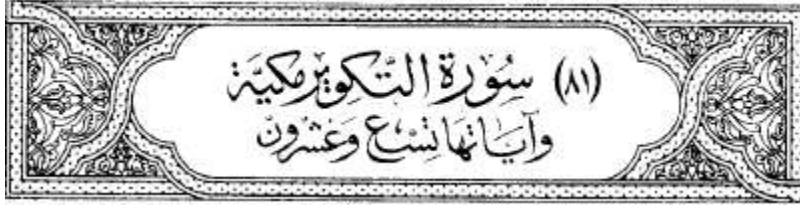 (٨١) سُورَة التَّكوِير مَكيَّة
وَآيَاتهَا تِسْع وَعِشْرُونَ